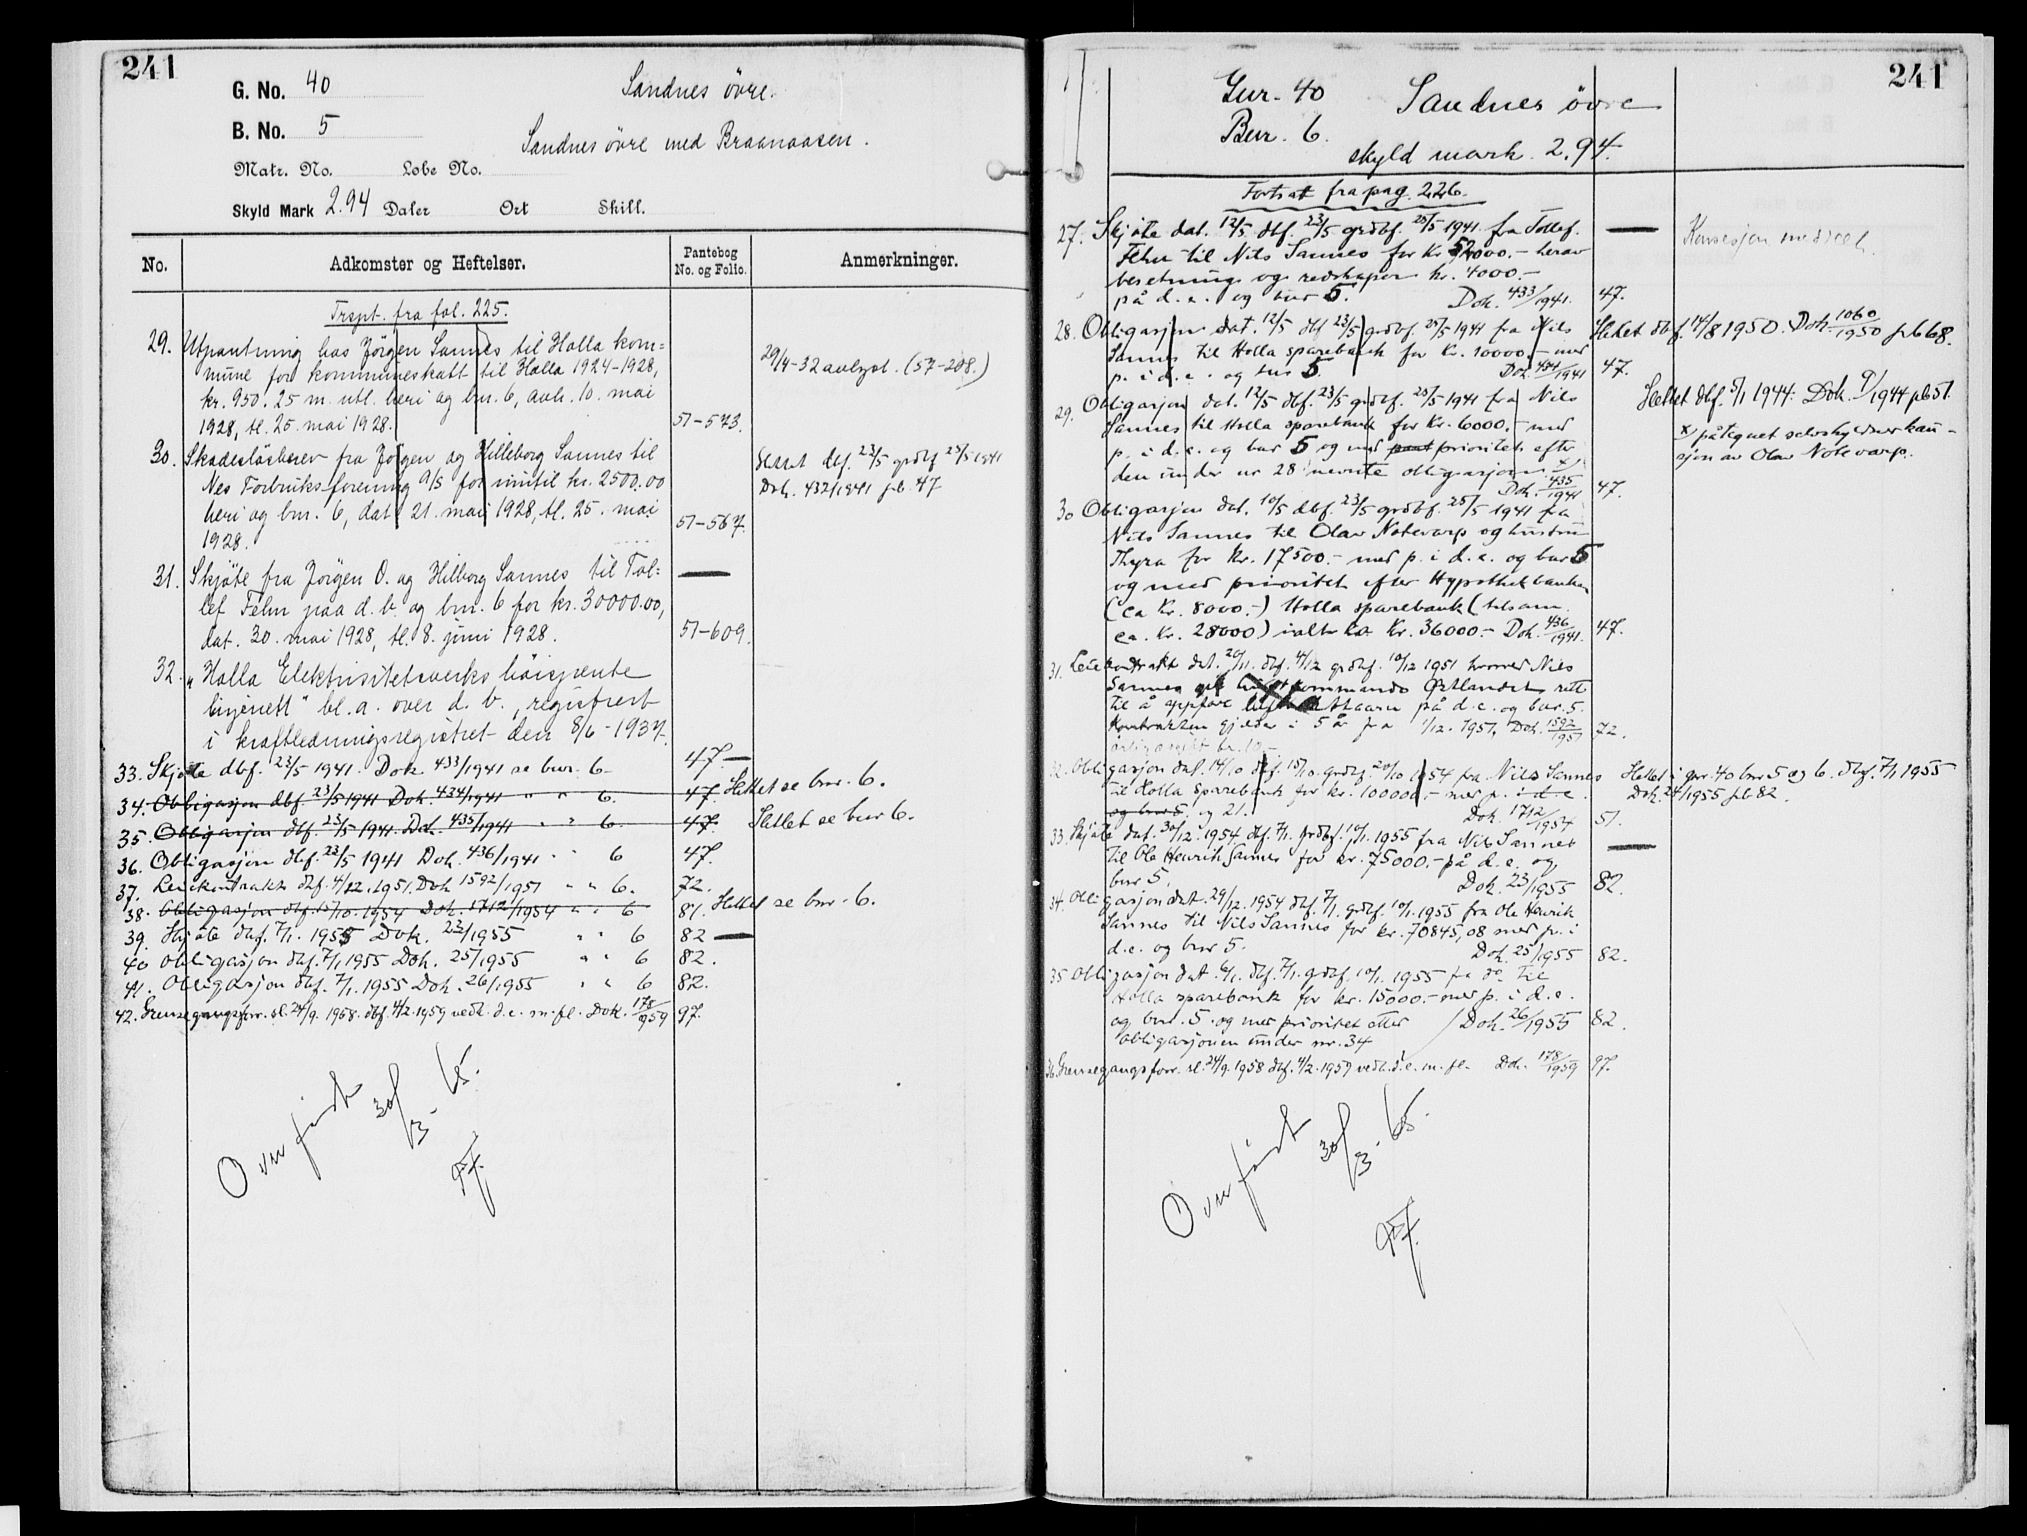 241
G. No. 40
Sandnes övre.
B. No. 5
Sandnes övre med Braanaasen.
Matr. No. Lobe No.
Skyld Mark 2.94 Daler Ort Skill.
No. Adkomster og Heftelser. Pantebog No. og Folio. Anmerkninger.
Trspt. fra fol. 225.
29. Utpantning hos Jörgen Sannes til Holla kom=
mune for kommuneskatt til Holla 1924-1928,
kr. 950.25 m. utl. heri og bnr. 6, avh. 10. mai
1928, tl. 25. mai 1928. 51-573.
29/4-32 avlyst. (57-208.)
30. Skadesløsbrev fra Jörgen og Hilleborg Sannes til
Nes Forbruksforening A/S for inntil kr. 2500.00
heri og bnr. 6, dat. 21. mai 1928, tl. 25. mai
1928. 51-567.
Slettet dbf. 23/5 grdbf 25/5 1941
Dok. 432/1941 pb. 47
31. Skjöte fra Jörgen O. og Hilborg Sannes til Tol=
lef Fehn paa d. b. og bnr. 6 for kr. 30000.00,
dat. 30. mai 1928, tl. 8. juni 1928. 51-609.
32. "Holla Elektrisitetsverks höispente
linjenett" bl. a. over d. b., registrert
i kraftledningsregistret den 8/6-1937.
33. Skjøte dbf. 23/5 1941. Dok 433/1941 se bnr. 6 47. —
34. Obligasjon dbf. 23/5 1941 Dok. 434/1941 " " 6. 47. Slettet se bnr. 6.
35. Obligasjon dbf. 23/5 1941. Dok. 435/1941 " " 6. 47. Slettet se bnr 6.
36. Obligasjon dbf. 23/5 1941 Dok. 436/1941 " " 6 47.
37. Leiekontrakt dbf. 4/12.1951. Dok 1592/1951 " " 6. 72.
38. Obligasjon dbf. 15/10.1954 Dok. 1712/1954 " " 6 81. Slettet se bnr. 6.
39. Skjøte dbf. 7/1. 1955 Dok. 23/1955 " " 6 82 —
40 Obligasjon dbf. 7/1 1955 Dok. 25/1955 " " 6 82.
41. Obligasjon dbf. 7/1. 1955 Dok. 26/1955 " " 6 82.
42. Grensegangsforr. sl. 24/9. 1958. dbf. 4/2. 1959 vedk. d.e. m. fl. Dok. 178/1959 97.
Overført 30/3-65.
241
Gnr. 40 Sandnes övre
Bnr. 6.
skyld mark. 2.94.
Fortsat fra pag. 226.
27. Skjøte dat. 12/5 dbf. 23/5 grdbf. 25/5 1941 fra Tollef.
Fehn til Nils Sannes for kr. 54000.- herav
besetning og redskaper kr. 4000.-
på d. e. og bnr 5. Dok. 433/1941. 47.
28. Obligasjon dat. 12/5 dbf 23/5 grdbf. 25/5 1941 fra Nils
Sannes til Holla sparebank for kr. 10000.- med
p. i d. e. og bnr 5. Dok. 434/1941 47.
Slettet dbf. 14/8 1950. Dok 1060/1950 pb 68.
29. Obligasjon dat. 12/5 dbf. 23/5 grdbf. 25/5 1941 fra Nils
Sannes til Holla sparebank for kr. 6000.- med
p. i d. e. og bnr 5 og med pant prioritet efter
den under nr 28 nevnte obligasjon x) Dok. 435/1941 47.
x) påtegnet selvskyldnerkau-
sjon av Olav Notevarp.
30 Obligasjon dat. 10/5 dbf. 23/5 grdbf. 25/5 1941 fra
Nils Sannes til Olav Notevarp og hustru
Thyra for kr. 17500.- med p. i d. e. og bnr 5
og med prioritet efter Hypothekbanken
(ca kr. 8000.-) Holla sparebank (tilsam.
ca. kr. 28000) ialt ca. kr. 36000.- Dok. 436/1941. 47.
31. Leiekontrakt dat. 20/11. dbf. 4/12 grdbf. 10/12 1951 hvorved Nils
Sannes gir Luftkommando Østlandet rett
til å oppføre på d. e. og bnr. 5.
Kontrakten gjelder i 5 år fra 1/12. 1951. Dok. 1592/1951 72.
32. Obligasjon dat. 14/10 dbf. 15/10. grdbf. 20/10 1954 fra Nils Sannes
til Holla sparebank for kr. 100000.- med p. i d e.
og bnr 5. og 21. Dok. 1712/1954 81.
Slettet i gnr. 40 bnr 5 og 6. dbf. 7/1 1955
Dok. 24/1955 pb 82.
33. Skjøte dat. 30/12. 1954 dbf. 7/1. grdbf. 10/1. 1955 fra Nils Sannes
til Ole Henrik Sannes for kr. 75000.- på d. e. og
bnr 5. Dok. 23/1955 82.
34. Obligasjon dat. 29/12. 1954 dbf. 7/1. grdbf. 10/1. 1955 fra Ole Henrik
Sannes til Nils Sannes for kr. 70845,08 med p. i
d. e. og bnr 5. Dok. 25/1955 82.
35 Obligasjon dat. 6/1. dbf. 7/1. grdbf. 10/1. 1955 fra do til
Holla sparebank for kr. 15000.- med p. i d. e.
og bnr. 5. og med prioritet etter Dok. 26/1955 82.
obligasjonen under nr. 34
36. Grensegangsforr. sl. 24/9. 1958 dbf. 4/2. 1959 vedk. d. e. m. fl. Dok. 178/1959 97.
Overført 30/3-65.